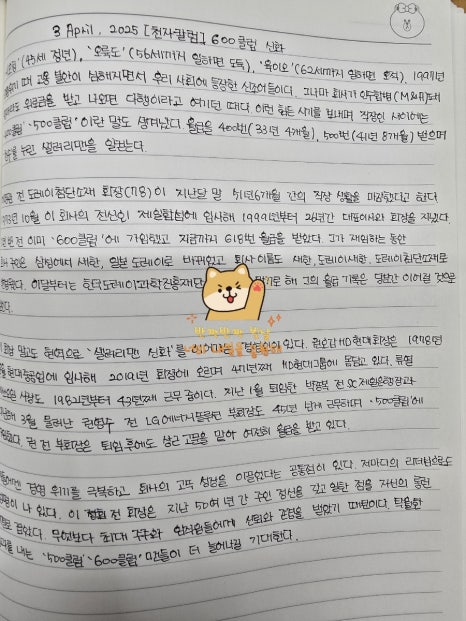 3 April, 2025 [천자칼럼] 600클럽 신화
(45세 정년), '오륙도' (56세까지 일하면 도둑), '육이오' (62세까지 일하면 오적), 1997년
때 고용 불안이 심해지면서 우리 사회에 등장한 신조어들이다. 그나마 회사가 인수합병 (M&A)돼
위로금을 받고 나오면 다행이라고 여기던 때다. 이런 힘든 시기를 보내며 직장인 사이에는
'500클럽' 이란 말도 생겨났다. 월급을 400번 (33년 4개월), 500번 (41년 8개월) 받으며
누린 샐러리맨을 일컫는다.
전 도레이첨단소재 회장(78)이 지난달 말 51년6개월 간의 직장 생활을 마감했다고 한다.
10월 이 회사의 전신인 제일합섬에 입사해 1999년부터 26년간 대표이사와 회장을 지냈다.
전 이미 '600클럽'에 가입했고 지금까지 618번 월급을 받았다. 그가 재임하는 동안
삼성에서 새한, 일본 도레이로 바뀌었고 회사 이름도 새한, 도레이새한, 도레이첨단소재로
이달부터는 한국도레이과학진흥재단 해 그의 월급 기록은 당분간 이어질 것으로
말고도 현역으로 '샐러리맨 신화'를 있다. 권오갑 HD현대회장은 1978년
현대중공업에 입사해 2019년 회장에 오르며 47년째 HD현대그룹에 몸담고 있다.
사장도 1982년부터 43년째 근무 중이다. 지난 1월 퇴임한 박정북 전 SC제일은행장과
3월 물러난 권영수 전 LG에너지솔루션 부회장도 45년 넘게 근무하며 '500클럽'에
권 전 부회장은 퇴임 후에도 상근 고문을 맡아 여전히 월급을 받고 있다.
경영 위기를 극복하고 회사의 고속 성장을 이끌었다는 공통점이 있다. 저마다의 리더십으로도
나 있다. 이 전 회장은 지난 50여 년 간 주인 정신을 갖고 일한 점을 자신의 롱런
꼽았다. 무엇보다 최대 주주와 임직원들에게 신뢰와 존경을 받았기 때문이다. 탁월한
내는 '500클럽' '600클럽' 멤버들이 더 늘어나길 기대한다.